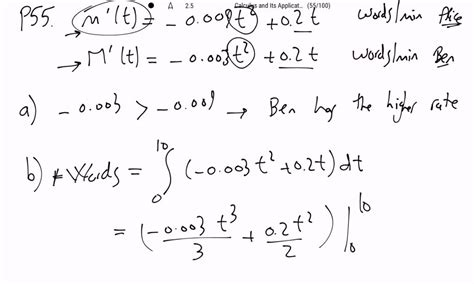 2.5 Calculus and Its Applicat... (55/100)
P55. m'(t) = -0.009t² + 0.2t words/min Alice
→ M'(t) = -0.003t² + 0.2t words/min Ben
a) -0.003 > -0.009 → Ben has the higher rate
b) #Words = ∫₀¹⁰ (-0.003t² + 0.2t) dt
= (-0.003 t³/3 + 0.2t²/2) |₀¹⁰